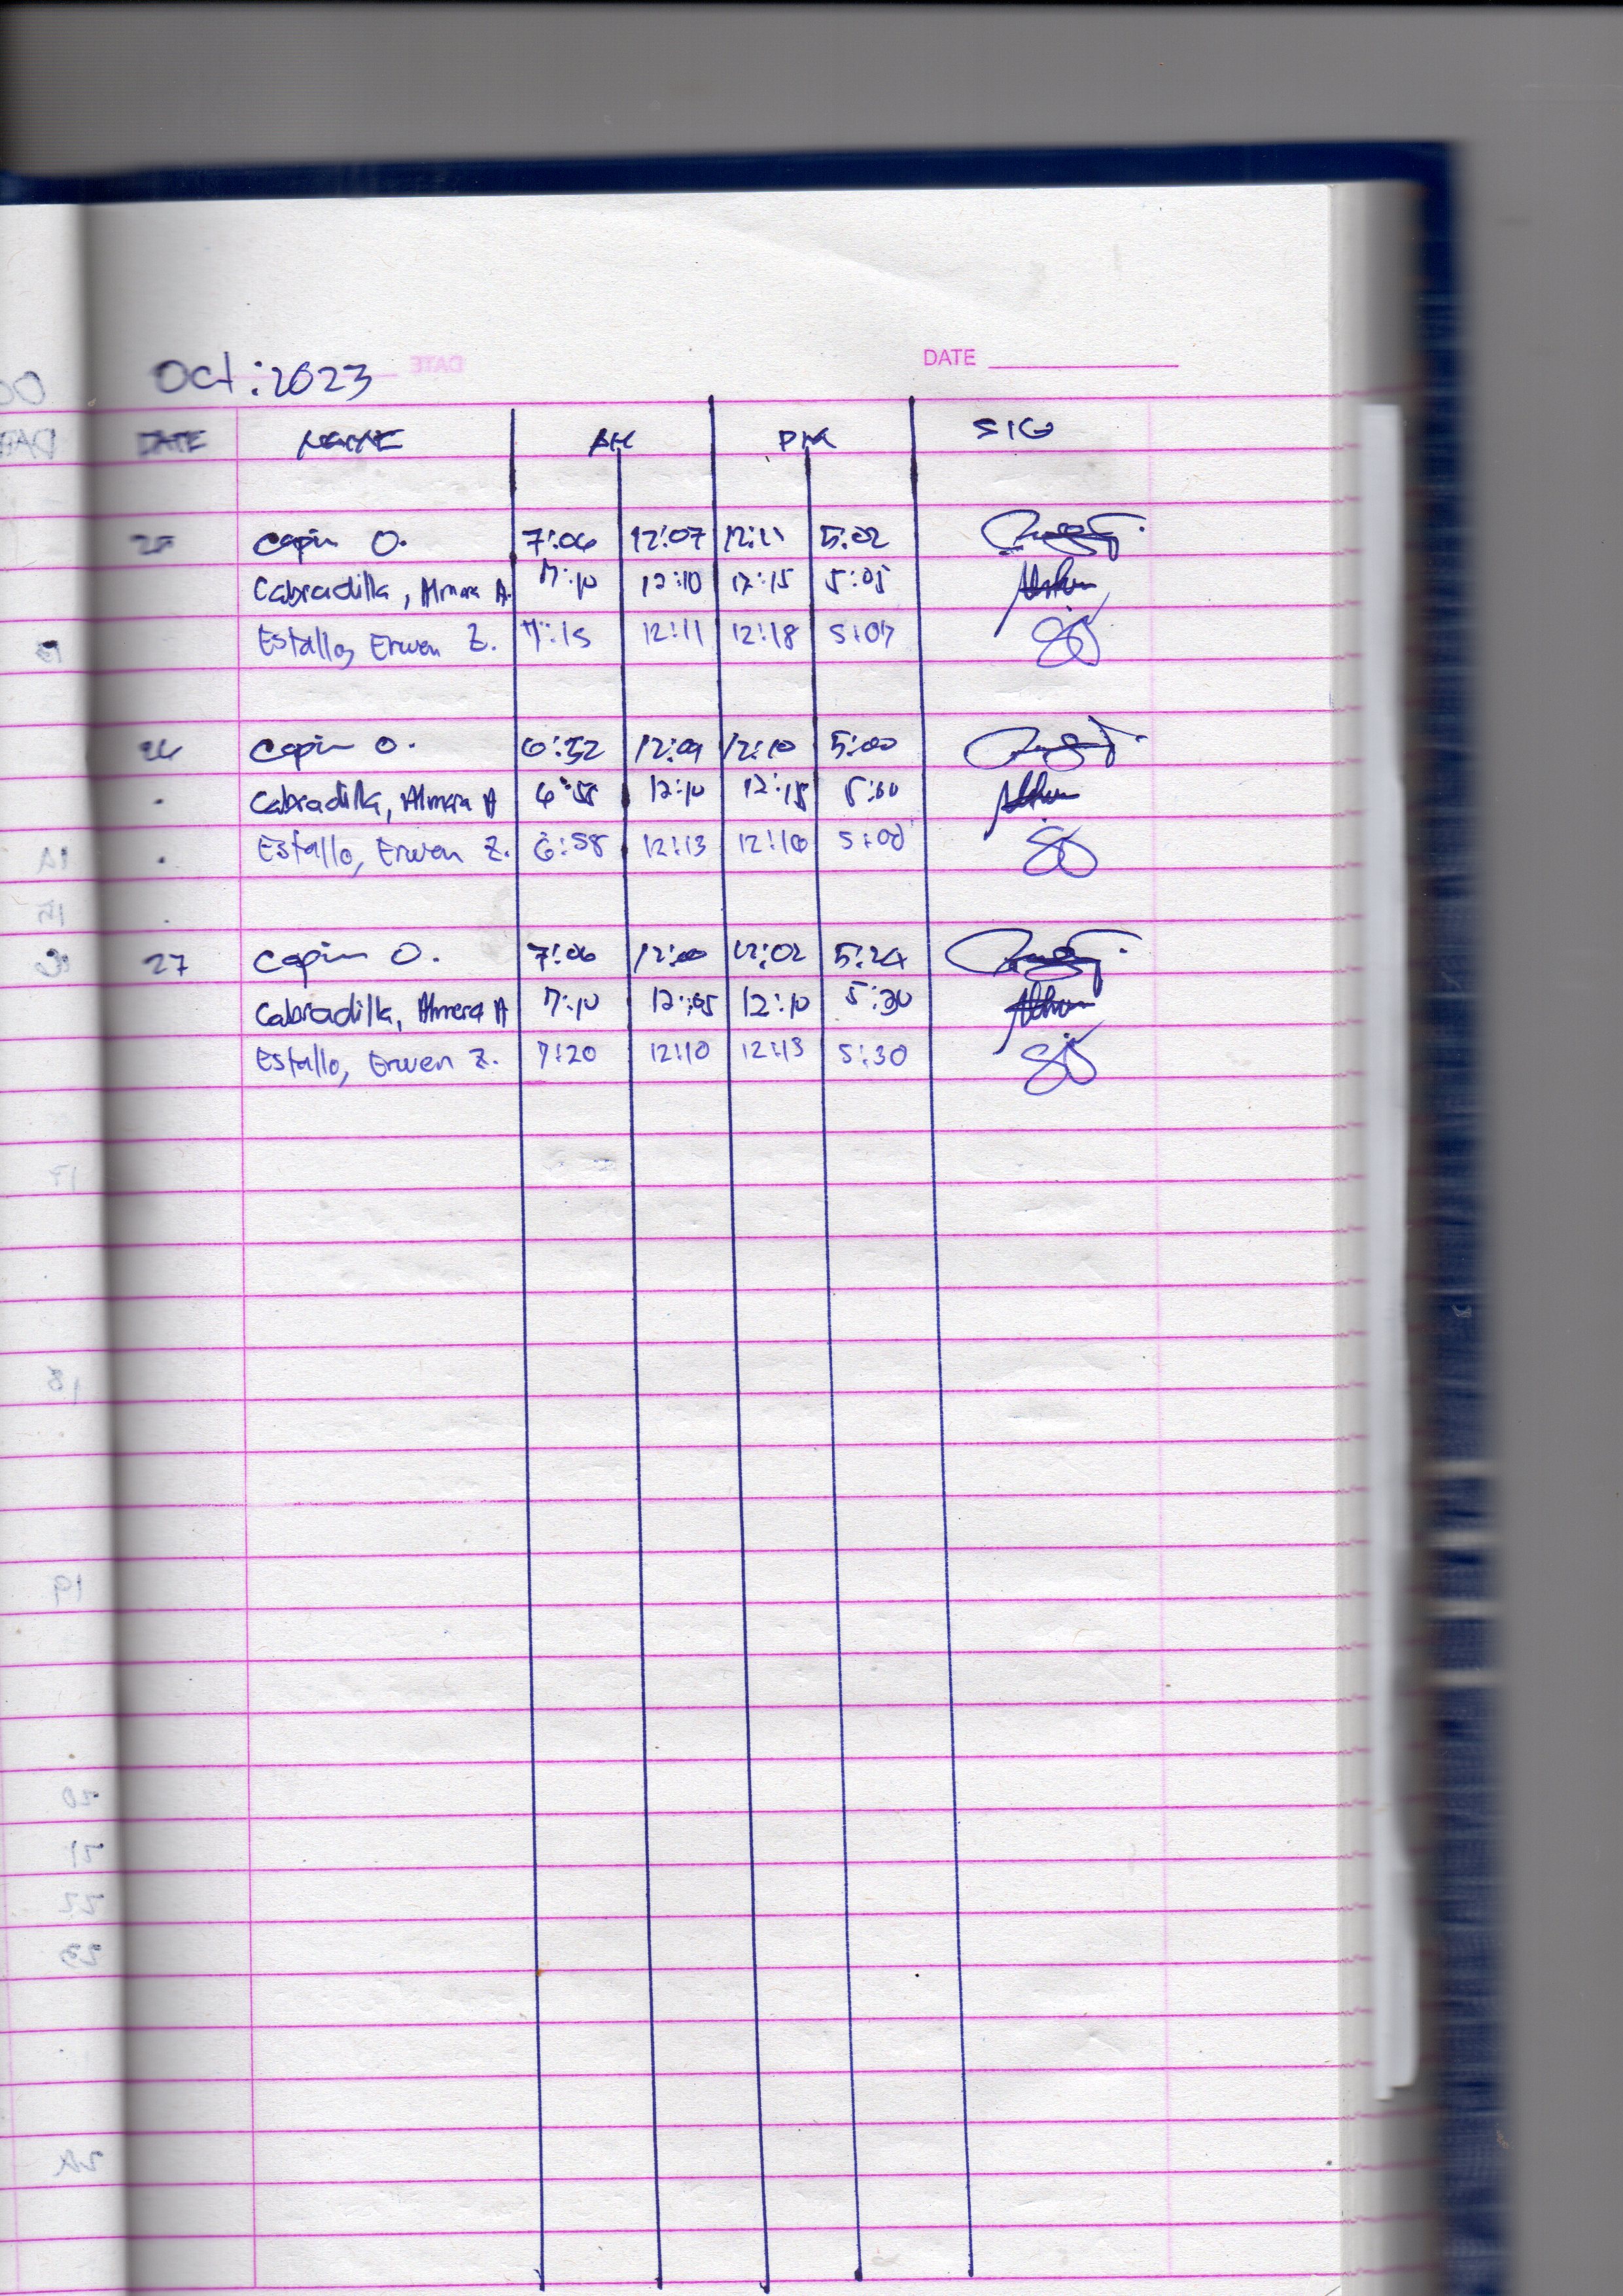 Oct: 2023
DATE
DATE NAME AM PM SIG
25 Capin O. 7:06 12:07 12:11 5:02
Cabradilla, Almera A. 7:10 12:10 12:15 5:05
Estallo, Erwen Z. 7:15 12:11 12:18 5:07
26 Capin O. 6:52 12:09 12:10 5:00
Cabradilla, Almera A 6:55 12:10 12:15 5:00
Estallo, Erwen Z. 6:58 12:13 12:16 5:00
27 Capin O. 7:06 12:00 12:02 5:24
Cabradilla, Almera A 7:10 12:05 12:10 5:30
Estallo, Erwen Z. 7:20 12:10 12:13 5:30